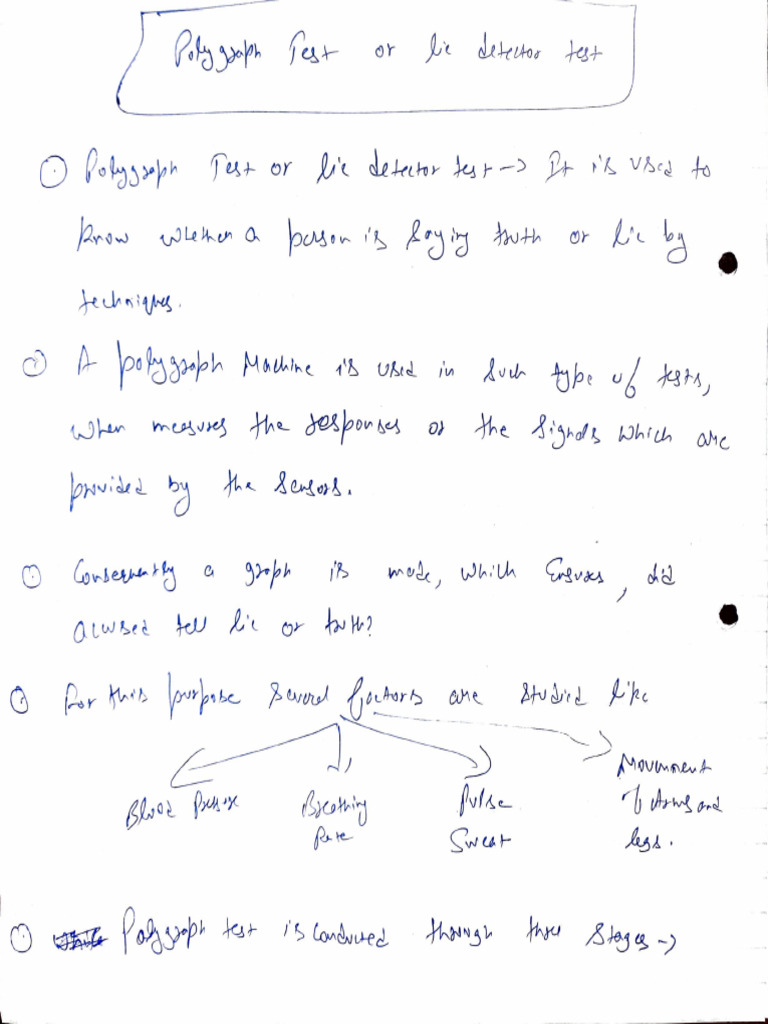 Polygraph Test or lie detector test
Polygraph Test or lie detector test → It is used to
know whether a person is saying truth or lie by
techniques.
A polygraph Machine is used in such type of tests,
when measures the responses or the signals which are
provided by the sensors.
Consequently a graph is made, which Ensures, did
accused tell lie or truth?
For this purpose several factors are studied like
Blood Pressure Breathing Pulse Movement
Rate Sweat of Arms and
legs.
Polygraph test is conducted through three stages →